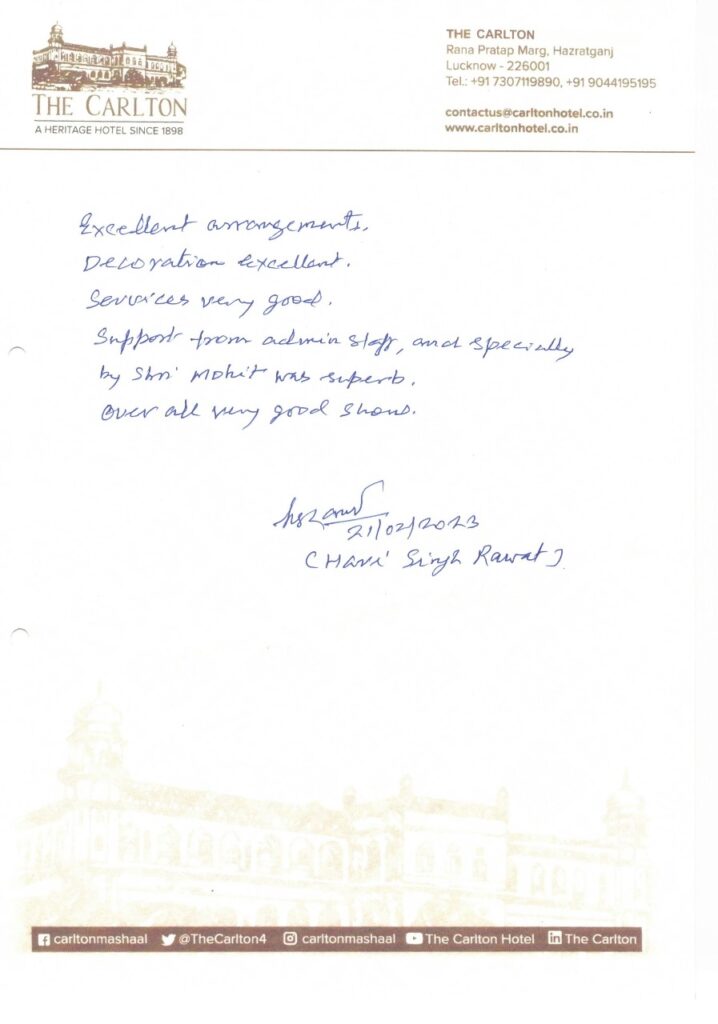 THE CARLTON
A HERITAGE HOTEL SINCE 1898
THE CARLTON
Rana Pratap Marg, Hazratganj
Lucknow - 226001
Tel.: +91 7307119890, +91 9044195195
contactus@carltonhotel.co.in
www.carltonhotel.co.in
Excellent arrangements.
Decoration excellent.
Services very good.
Support from admin staff, and specially
by Shri Mohit was superb.
Over all very good show.
21/02/2023
(Havi Singh Rawat)
carltonmashaal @TheCarlton4 carltonmashaal The Carlton Hotel The Carlton